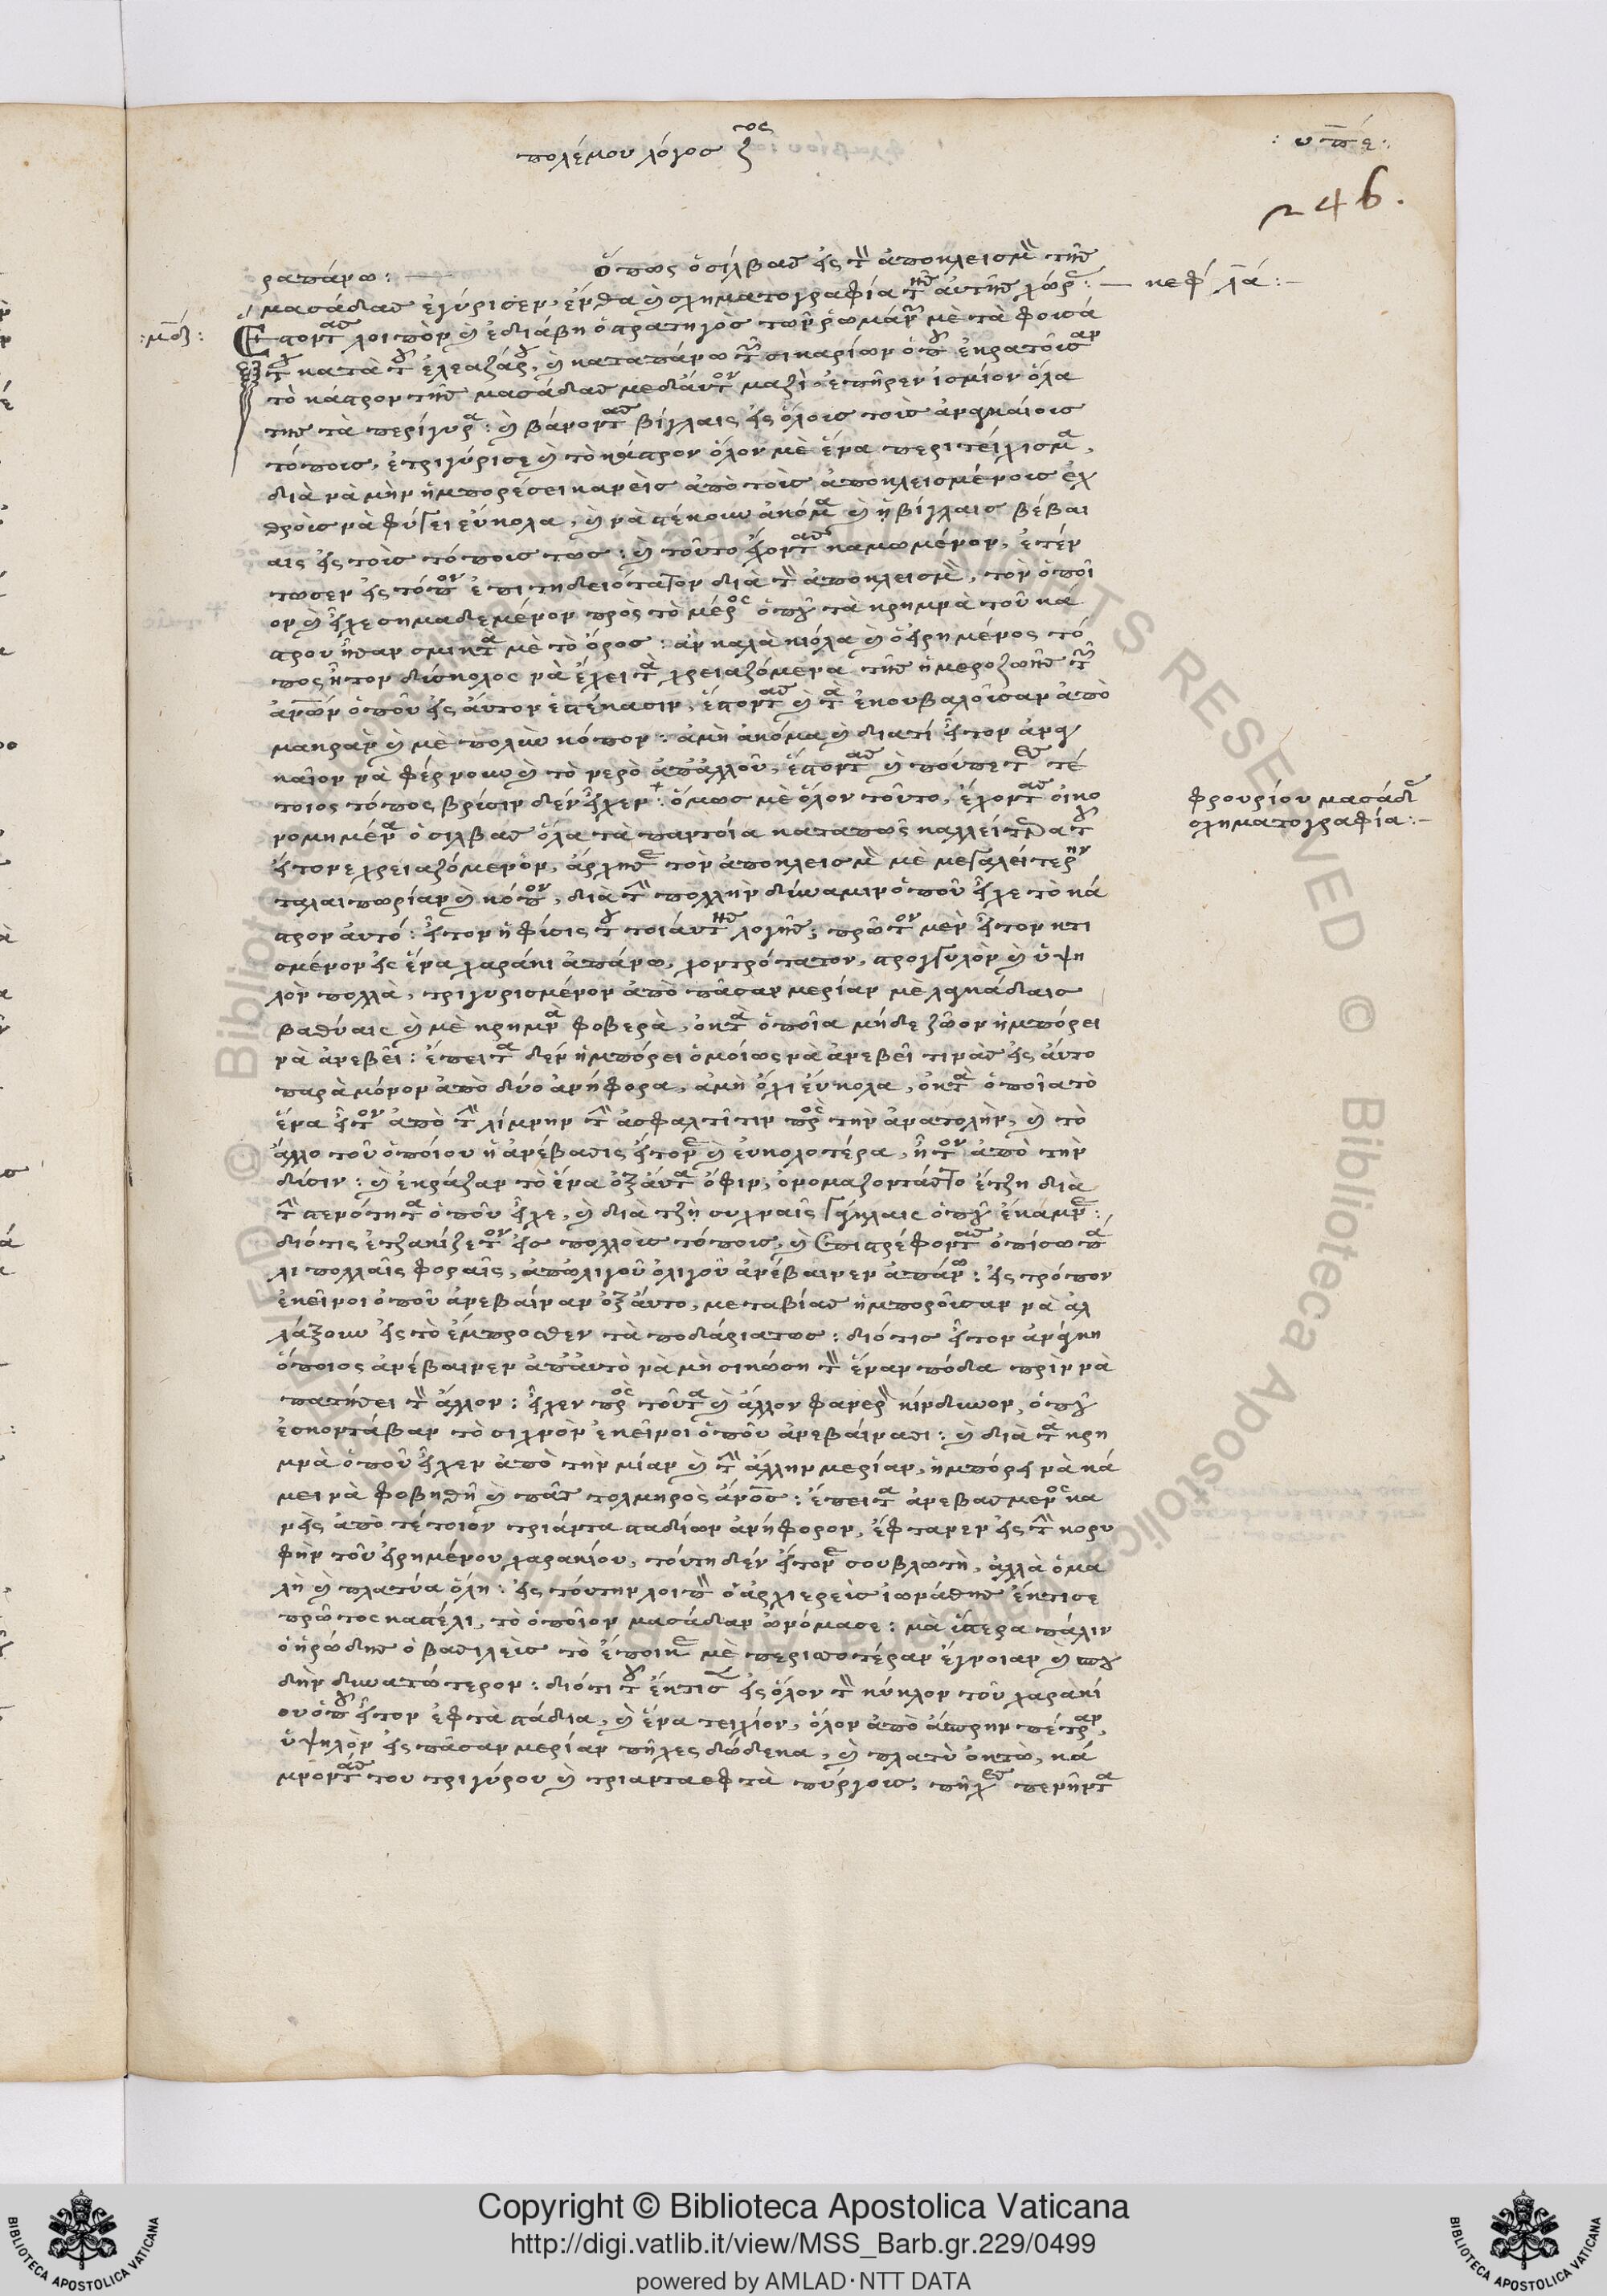 πολέμου λόγος ζος
: υπε :
246.
ραπάνω : — ὅπως ὁ σίλβας εἰς τὸν ἀποκλεισμὸν τῆς
μασάδας ἐγύρισεν, ἔνθα καὶ σχηματογραφία τῆς αὐτῆς χώρας : — κεφ. ια : —
ἔστοντας λοιπὸν καὶ ἐδιάβη ὁ στρατηγὸς τῶν ῥωμάνων μὲ τὰ φουσά
τα κατὰ τοῦ ἐλεαζάρου, καὶ καταπάνω τῶν σικαρίων ὁποῦ ἐκρατοῦσαν
τὸ κάστρον τῆς μασάδας μεδαύτον μαζὶ, ἐπῆρεν ἰσμίον ὅλα
της τὰ περίγυρα : καὶ βάνοντας βίγλαις εἰς ὅλους τοὺς ἀνακαίους
τόπους, ἐτριγύρισε καὶ τὸ κάστρον ὅλον μὲ ἕνα περιτείχισμα,
διὰ νὰ μὴν ἠμπορέσει κανεὶς ἀπὸ τοὺς ἀποκλεισμένους ἐχ
θροὺς νὰ φύγει εὔκολα, καὶ νὰ στέκουν ἀκόμα καὶ ἡ βίγλαις βέβαι
αις εἰς τοὺς τόπους τως : καὶ τοῦτο ἔχοντας καμωμένον, ἐτέν
τωσεν εἰς τόπον ἐπιτηδειότατον διὰ τὸν ἀποκλεισμὸν, τὸν ὁποῖ
ον καὶ εἶχε σημαδεμένον πρὸς τὸ μέρος ὁποῦ τὰ κρημνὰ τοῦ κά
στρου ἦσαν σμικτὰ μὲ τὸ ὄρος : ἂν καλὰ κιόλα καὶ ὁ εἰρημένος τό
πος ἦτον δύσκολος νὰ ἔχει τὰ χρειαζόμενα τῆς ἡμεροζωῆς τῶν
ἀνων ὁποῦ εἰς αὐτον ἐστέκασιν, ἔστοντας καὶ τὰ ἐκουβαλοῦσαν ἀπὸ
μακρὰν καὶ μὲ πολὺν κόπον : ἀμὴ ἀκόμα καὶ διατί ἦτον ἀναγ
καῖον νὰ φέρνουν καὶ τὸ νερὸ ἀπάλλου, ἔστοντας καὶ πούπετες τέ
τοιος τόπος βρύσιν δὲν εἶχεν : ὅμως μὲ ὅλον τοῦτο, ἔχοντας οἰκο
νομημένα ὁ σίλβας ὅλα τὰ παντοῖα καταπῶς καλλείτερα τοῦ
ἦτονε χρειαζόμενον, ἄρχησε τὸν ἀποκλεισμὸν μὲ μεγαλείτερην
ταλαιπωρίαν καὶ κόπον, διὰ τὴν πολλὴν δύναμιν ὁποῦ εἶχε τὸ κά
στρον αὐτό : ἦτον ἡ φύσις του τοιαύτης λογῆς, πρῶτον μὲν ἦτον κτι
σμένον εἰς ἕνα χαράκι ἀπάνω, χοντρότατον, στρογγυλὸν καὶ ὑψη
λὸν πολλὰ, τριγυρισμένον ἀπὸ πᾶσαν μερίαν μὲ λαγκάδαις
βαθύαις καὶ μὲ κρημνὰ φοβερὰ, ἐκ τὰ ὁποῖα μήδε ζῶον ἠμπόρει
νὰ ἀνεβεῖ : ἔπειτα δὲν ἠμπόρει ὁμοίως νὰ ἀνεβεῖ τινὰς εἰς αὐτο
παρὰ μόνον ἀπὸ δύο ἀνήφορα, ἀμὴ ὄχι εὔκολα, ἐκ τὰ ὁποῖα τὸ
ἕνα ἦτον ἀπὸ τὴν λίμνην τὴν ἀσφαλτῖτιν πρὸς τὴν ἀνατολὴν, καὶ τὸ
ἄλλο τοῦ ὁποίου ἡ ἀνέβασις ἦτονε καὶ εὐκολοτέρα, ἦτον ἀπὸ τὴν
δύσιν : καὶ ἐκράζαν τὸ ἕνα ἐξαύτα ὄφιν, ὀνομαζοντάς το ἔτζη διὰ
τὴν στενότητα ὁποῦ εἶχε, καὶ διὰ τζὴ συχναῖς γύκλαις ὁποῦ ἐκάμνε :
διότις ἐτζακίζετον εἰς πολλοὺς τόπους, καὶ ἐπιστρέφοντας ὀπίσω πά
λι πολλαῖς φοραῖς, ἀπολιγοῦ ὀλιγοῦ ἀνέβαινεν ἀπάνω : εἰς τρόπον
ἐκεῖνοι ὁποῦ ἀνεβαίναν ἐξαύτο, μεταβίας ἠμποροῦσαν νὰ ἀλ
λάξουν εἰς τὸ ἔμπροσθεν τὰ ποδάρια τως : διότις ἦτον ἀνάγκη
ὅποιος ἀνέβαινεν ἀπαὐτὸ νὰ μὴ σικώση τὸν ἕναν πόδα πρὶν νὰ
πατήσει τὸν ἄλλον : εἶχεν πρὸς τοῦτα καὶ ἄλλον φανερὸν κίνδυνον, ὁποῦ
ἐσκοντάβαν τὸ συχνὸν ἐκεῖνοι ὁποῦ ἀνεβαίνασι : καὶ διὰ τὰ κρη
μνὰ ὁποῦ εἶχεν ἀπὸ τὴν μίαν καὶ τὴν ἄλλην μερίαν, ἠμπόρει νὰ κά
μει νὰ φοβηθῆ καὶ πᾶσα τολμηρὸς ἄνος : ἔπειτα ἀνεβασμενος κα
νεὶς ἀπὸ τέτοιον τριάντα σταδίων ἀνήφορον, ἔφτανεν εἰς τὴν κορυ
φὴν τοῦ εἰρημένου χαρακίου, τούτη δὲν ἦτονε σουβλωτὴ, ἀλλὰ ὁμα
λὴ καὶ πλατύα ὅλη : εἰς τούτην λοιπὸν ὁ ἀρχιερεὺς ἰωνάθης ἔκτισε
πρῶτος καστέλι, τὸ ὁποῖον μασάδαν ὠνόμασε : μὰ ὕστερα πάλιν
ὁ ἡρώδης ὁ βασιλεὺς τὸ ἔποικε μὲ περισσοτέραν ἔγνοιαν καὶ σπου
δὴν δυνατώτερον : διότι του ἔκτισε εἰς ὅλον τὸν κύκλον τοῦ χαρακί
ου ὁποῦ ἦτον ἑφτὰ στάδια, καὶ ἕνα τειχίον, ὅλον ἀπὸ ἄσπρην πέτραν,
ὑψηλὸν εἰς πᾶσαν μερίαν πῆχες δώδεκα, καὶ πλατὺ ὀκτὼ, κά
μνοντάς του τριγύρου καὶ τριανταεφτὰ πύργους, πῆχες πενῆντα
φρουρίου μασάδας
σχηματογραφία : —
Copyright © Biblioteca Apostolica Vaticana
http://digi.vatlib.it/view/MSS_Barb.gr.229/0499
powered by AMLAD·NTT DATA
BIBLIOTECA APOSTOLICA VATICANA
BIBLIOTECA APOSTOLICA VATICANA